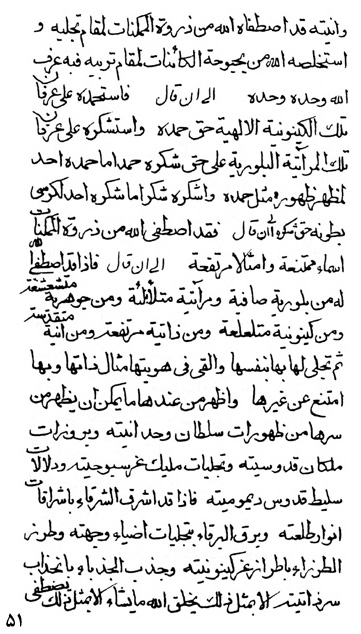 وانيته قد اصطفاه الله من ذروة الممكنات لمقام تجليه و
استخلصه الله من بحبوحة الكائنات لمقام تربيه فبه عرف
الله وحده وحده الى ان قال فاستحمده على عرفان
تلك الكينونية الالهية حق حمده واستشكره على عرفان
تلك المرآتية البلورية على حق شكره حمدا ما حمده احد
لمظهر ظهوره مثل حمده واشكره شكرا ما شكره احد لكرسي
بطونه حق شكره الى ان قال فقد اصطفى الله من ذروة الممكنات
اسماء ممتنعة وامثالا مرتفعة الى ان قال فاذا قد اصطفا
الله
له من بلورية صافية ومرآتية متلألئة ومن جوهرية متشعشعة
ومن كينونية متلعلعة ومن ذاتية مرتفعة ومن انية متقدسة
ثم تجلى لها بها بنفسها والقى في هويتها مثال ذاتها وبها
امتنع عن غيرها واظهر من عندها ما يمكن ان يظهر من
سرها من ظهورات سلطان وحدانيته وبروزات
ملكان قدوسيته وتجليات مليك عز سبوحيته ودلالات
سليط قدوس ديموميته فاذا قد اشرق الشرقاء باشراقات
انوار طلعته وبرق البرقاء بتجليات اضياء وجهته وطرز
الطرزاء باطراز عز كينونيته وجذب الجذباء بانجذاب
سر ذاتيته الا بمثل ذلك يخلق الله ما يشاء الا بمثل ذلك يصطفى
۵۱